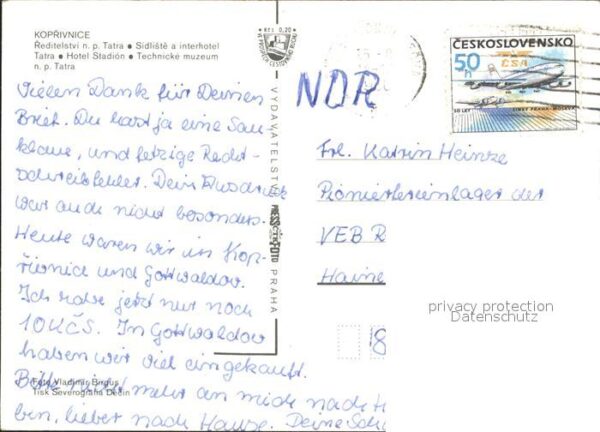 KOPŘIVNICE
Ředitelství n. p. Tatra • Sídliště a interhotel
Tatra • Hotel Stadión • Technické muzeum
n. p. Tatra
Kčs 0,20
Vielen Dank für Deinen
Brief. Du hast ja eine Sau-
klaue, und fetzige Recht-
schreibfehler. Dein Ausdruck
war auch nicht besonders.
Heute waren wir in Kop-
řivnice und Gottwaldov.
Ich habe jetzt nur noch
10 KČS. In Gottwaldov
haben wir viel eingekauft.
Foto Vladimír Birgus
Tisk Severografia Děčín
Bitte nicht mehr an mich nach H
bin, lieber nach Hause. Deine
VYDAVATELSTVÍ
PRAHA
NDR
ČESKOSLOVENSKO
50 h
ČSA
50 LET
Frl. Katrin Heintze
Pionierferienlager des
VEB R
Haine
privacy protection
Datenschutz
8